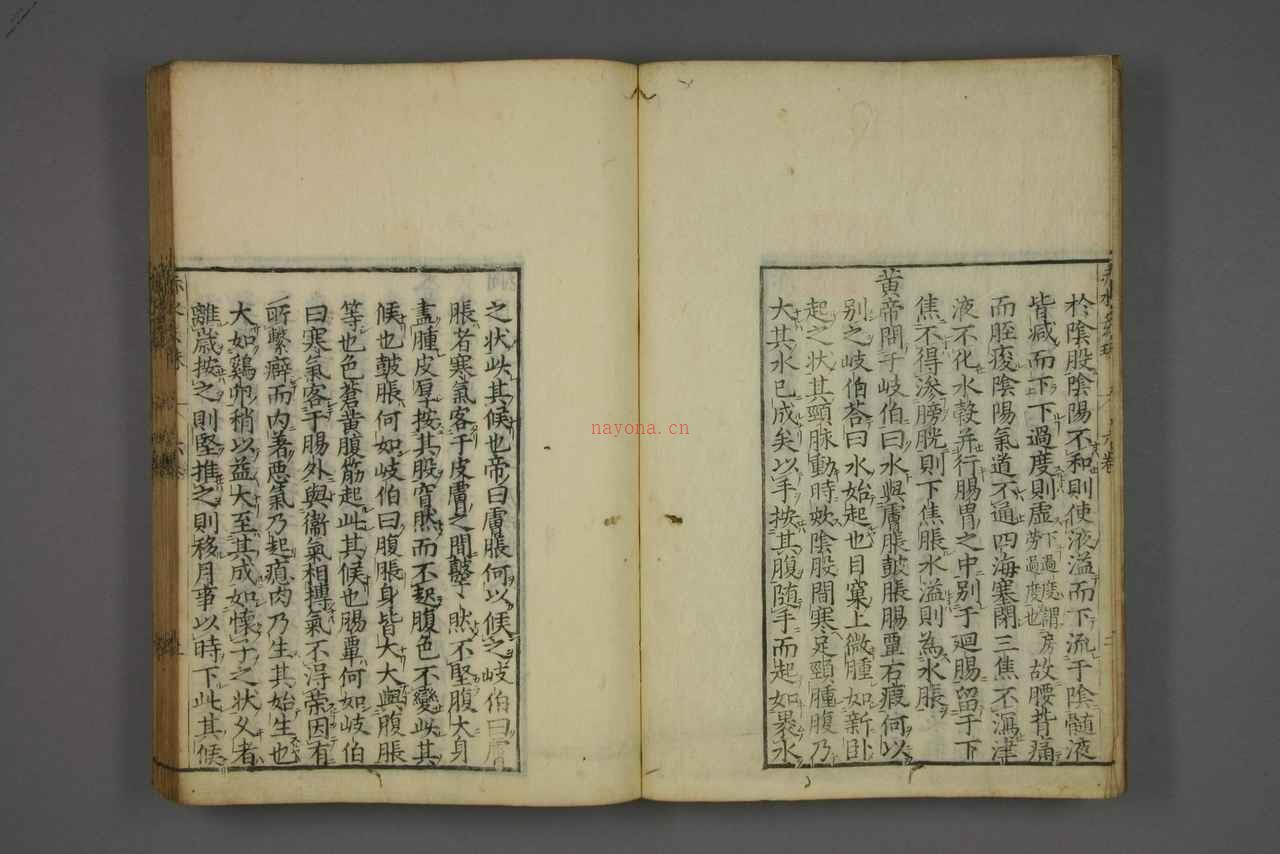 於陰股陰陽不和則使液溢而下流于陰髓液
皆减而下下過度則虛下過度謂房勞過度也故腰背痛
而脛痠陰陽氣道不通四海塞閉三焦不瀉津
液不化水穀并行腸胃之中别于廻腸留于下
焦不得滲膀胱則下焦脹水溢則為水脹
黄帝問于岐伯曰水與膚脹皷脹腸覃石瘕何以
别之岐伯荅曰水始起也目窠上微腫如新卧
起之状其頸脉動時欬陰股間寒足頸腫腹乃
大其水已成矣以手按其腹随手而起如褁水
之状此其候也帝曰膚脹何以候之岐伯曰膚
脹者寒氣客于皮膚之間鼟々然不堅腹大身
盡腫皮厚按其股窅然而不起腹色不變此其
候也皷脹何如岐伯曰腹脹身皆大大與膚脹
等也色蒼黄腹筋起此其候也腸覃何如岐伯
曰寒氣客于腸外與衞氣相搏氣不淂荣因有
所繫癖而内著悪氣乃起瘜肉乃生其始生也
大如鷄卵稍以益大至其成如懐子之状乆者
離歳按之則堅推之則移月事以時下此其候
nayona.cn